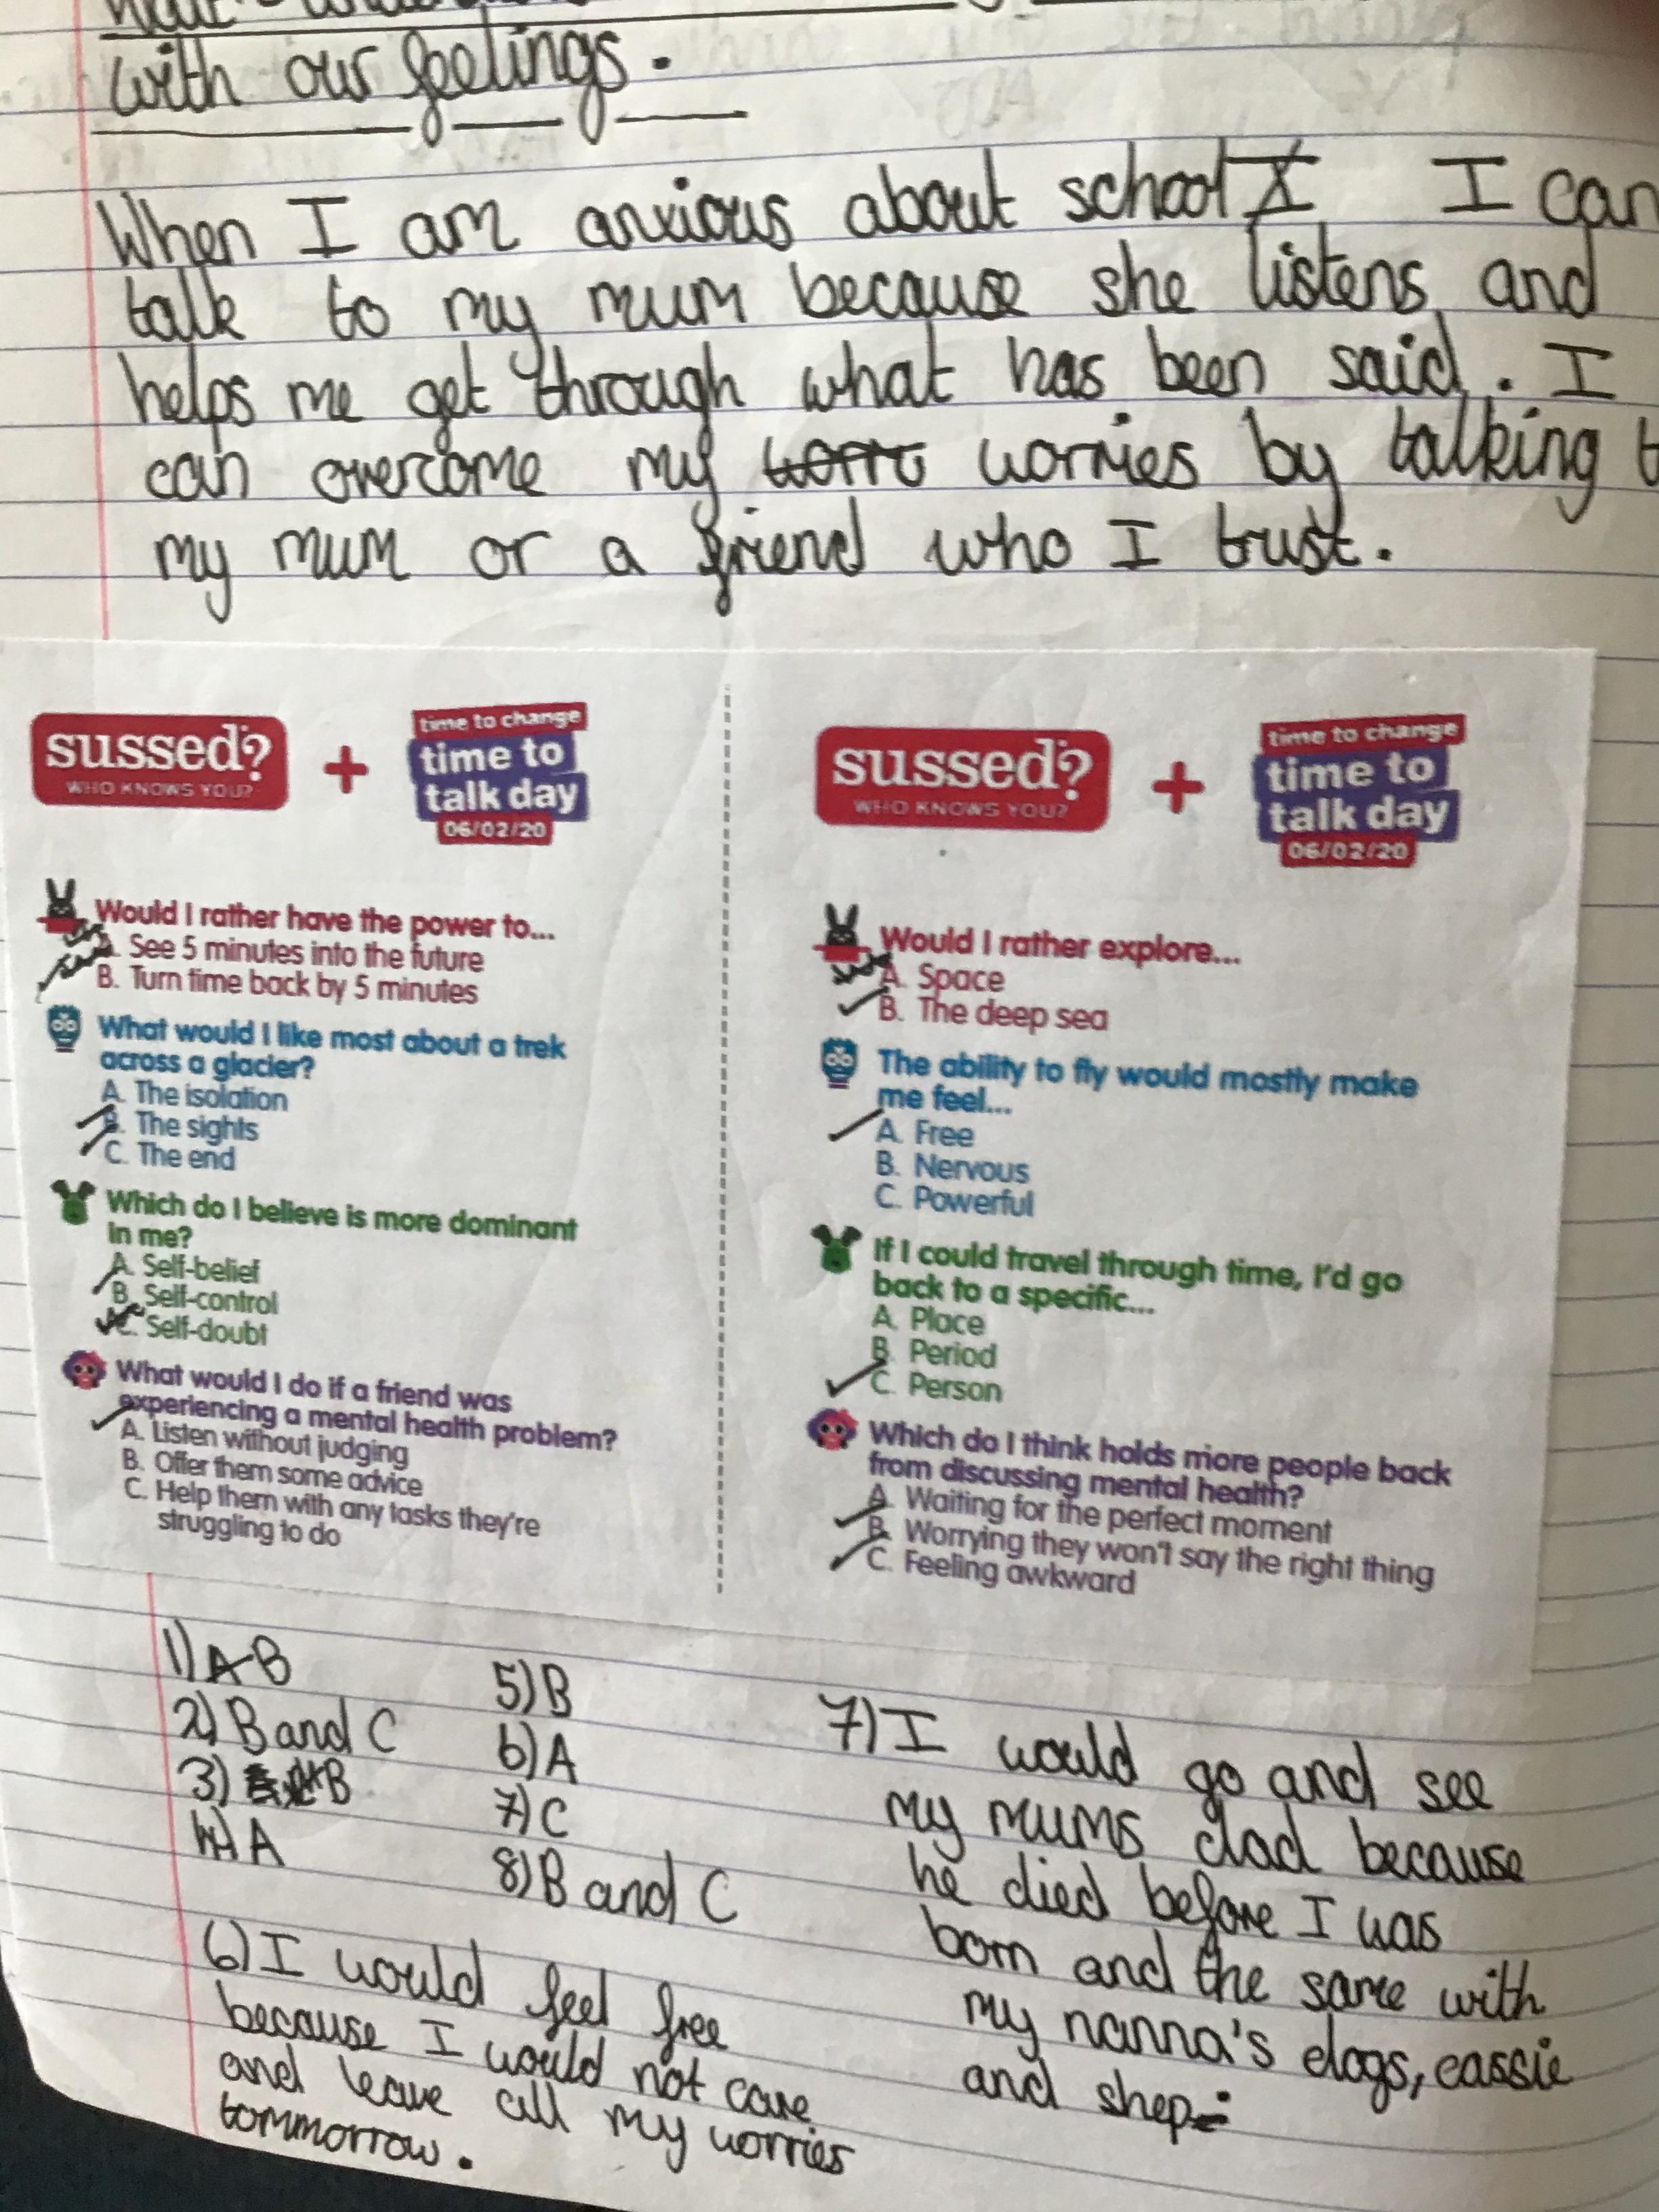 with our feelings.
When I am anxious about school I can
talk to my mum because she listens and
helps me get through what has been said. I
can overcome my worries by talking t
my mum or a friend who I trust.
sussed?
WHO KNOWS YOU?
+
time to change
time to
talk day
06/02/20
Would I rather have the power to...
A. See 5 minutes into the future
B. Turn time back by 5 minutes
What would I like most about a trek
across a glacier?
A. The isolation
B. The sights
C. The end
Which do I believe is more dominant
in me?
A. Self-belief
B. Self-control
C. Self-doubt
What would I do if a friend was
experiencing a mental health problem?
A. Listen without judging
B. Offer them some advice
C. Help them with any tasks they're
struggling to do
sussed?
WHO KNOWS YOU?
+
time to change
time to
talk day
06/02/20
Would I rather explore...
A. Space
B. The deep sea
The ability to fly would mostly make
me feel...
A. Free
B. Nervous
C. Powerful
If I could travel through time, I'd go
back to a specific...
A. Place
B. Period
C. Person
Which do I think holds more people back
from discussing mental health?
A. Waiting for the perfect moment
B. Worrying they won't say the right thing
C. Feeling awkward
1) A B
2) B and C
3) B
4) A
5) B
6) A
7) C
8) B and C
6) I would feel free
because I would not care
and leave all my worries
tommorrow.
7) I would go and see
my mums dad because
he died before I was
born and the same with
my nanna's dogs, cassie
and shep.